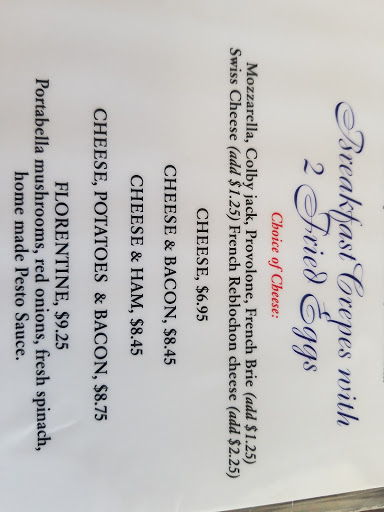 Breakfast Crepes with
2 Fried Eggs
Choice of Cheese:
Mozzarella, Colby jack, Provolone, French Brie (add $1.25)
Swiss Cheese (add $1.25) French Reblochon cheese (add $2.25)
CHEESE, $6.95
CHEESE & BACON, $8.45
CHEESE & HAM, $8.45
CHEESE, POTATOES & BACON, $8.75
FLORENTINE, $9.25
Portabella mushrooms, red onions, fresh spinach,
home made Pesto Sauce.